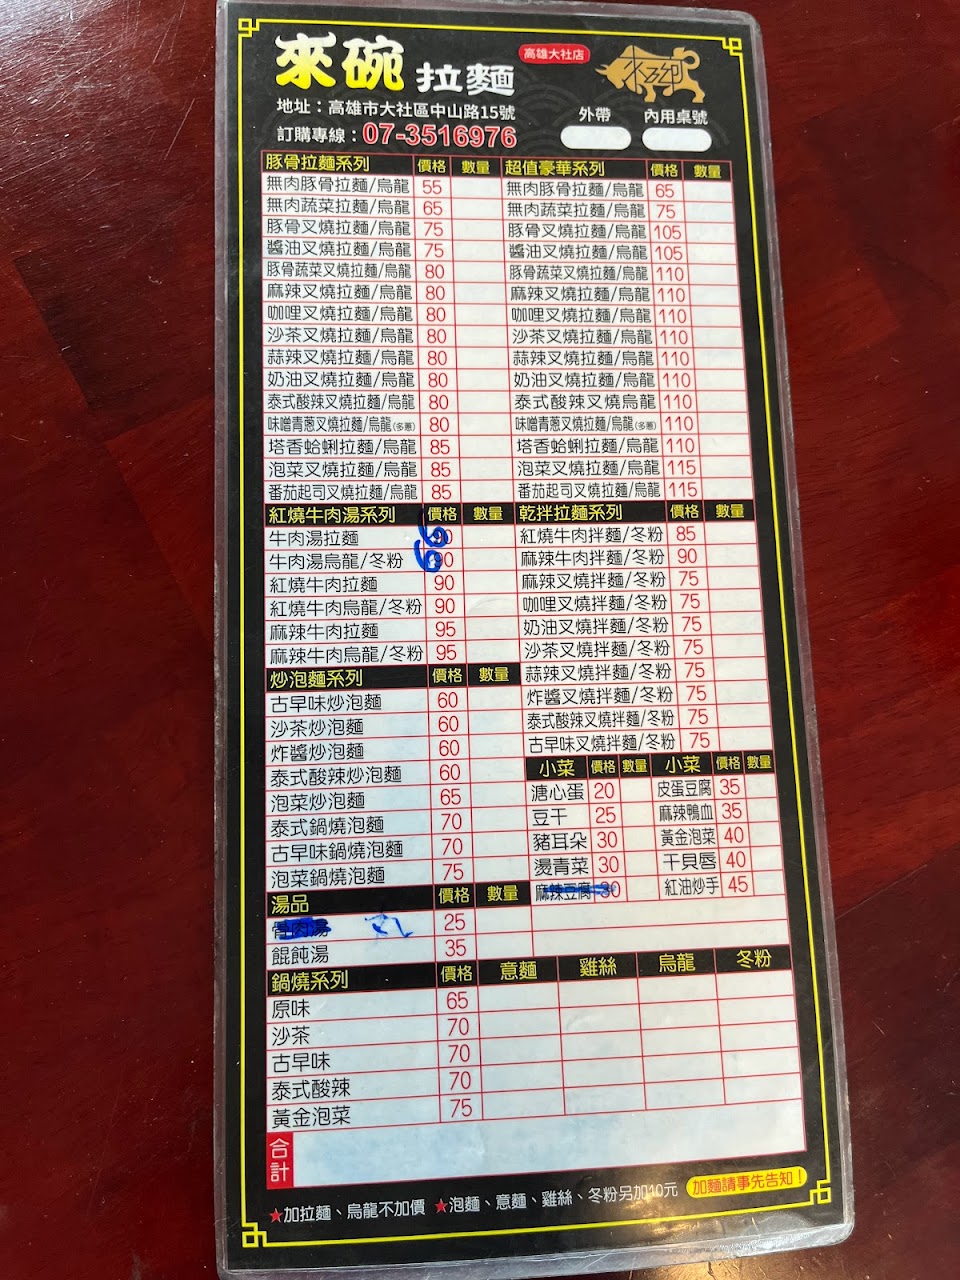 來碗 拉麵 高雄大社店
來碗
地址：高雄市大社區中山路15號
訂購專線：07-3516976
外帶 內用桌號
豚骨拉麵系列 價格 數量
無肉豚骨拉麵/烏龍 55
無肉蔬菜拉麵/烏龍 65
豚骨叉燒拉麵/烏龍 75
醬油叉燒拉麵/烏龍 75
豚骨蔬菜叉燒拉麵/烏龍 80
麻辣叉燒拉麵/烏龍 80
咖哩叉燒拉麵/烏龍 80
沙茶叉燒拉麵/烏龍 80
蒜辣叉燒拉麵/烏龍 80
奶油叉燒拉麵/烏龍 80
泰式酸辣叉燒拉麵/烏龍 80
味噌青蔥叉燒拉麵/烏龍(多蔥) 80
塔香蛤蜊拉麵/烏龍 85
泡菜叉燒拉麵/烏龍 85
番茄起司叉燒拉麵/烏龍 85
超值豪華系列 價格 數量
無肉豚骨拉麵/烏龍 65
無肉蔬菜拉麵/烏龍 75
豚骨叉燒拉麵/烏龍 105
醬油叉燒拉麵/烏龍 105
豚骨蔬菜叉燒拉麵/烏龍 110
麻辣叉燒拉麵/烏龍 110
咖哩叉燒拉麵/烏龍 110
沙茶叉燒拉麵/烏龍 110
蒜辣叉燒拉麵/烏龍 110
奶油叉燒拉麵/烏龍 110
泰式酸辣叉燒烏龍 110
味噌青蔥叉燒拉麵/烏龍(多蔥) 110
塔香蛤蜊拉麵/烏龍 110
泡菜叉燒拉麵/烏龍 115
番茄起司叉燒拉麵/烏龍 115
紅燒牛肉湯系列 價格 數量
牛肉湯拉麵 90
牛肉湯烏龍/冬粉 90
紅燒牛肉拉麵 90
紅燒牛肉烏龍/冬粉 90
麻辣牛肉拉麵 95
麻辣牛肉烏龍/冬粉 95
炒泡麵系列 價格 數量
古早味炒泡麵 60
沙茶炒泡麵 60
炸醬炒泡麵 60
泰式酸辣炒泡麵 60
泡菜炒泡麵 65
泰式鍋燒泡麵 70
古早味鍋燒泡麵 70
泡菜鍋燒泡麵 75
湯品 價格 數量
骨肉湯 25
餛飩湯 35
乾拌拉麵系列 價格 數量
紅燒牛肉拌麵/冬粉 85
麻辣牛肉拌麵/冬粉 90
麻辣叉燒拌麵/冬粉 75
咖哩叉燒拌麵/冬粉 75
奶油叉燒拌麵/冬粉 75
沙茶叉燒拌麵/冬粉 75
蒜辣叉燒拌麵/冬粉 75
炸醬叉燒拌麵/冬粉 75
泰式酸辣叉燒拌麵/冬粉 75
古早味叉燒拌麵/冬粉 75
小菜 價格 數量 小菜 價格 數量
溏心蛋 20 皮蛋豆腐 35
豆干 25 麻辣鴨血 35
豬耳朵 30 黃金泡菜 40
燙青菜 30 干貝唇 40
麻辣豆腐 30 紅油炒手 45
鍋燒系列 價格 意麵 雞絲 烏龍 冬粉
原味 65
沙茶 70
古早味 70
泰式酸辣 70
黃金泡菜 75
合計
★加拉麵、烏龍不加價 ★泡麵、意麵、雞絲、冬粉另加10元 加麵請事先告知！